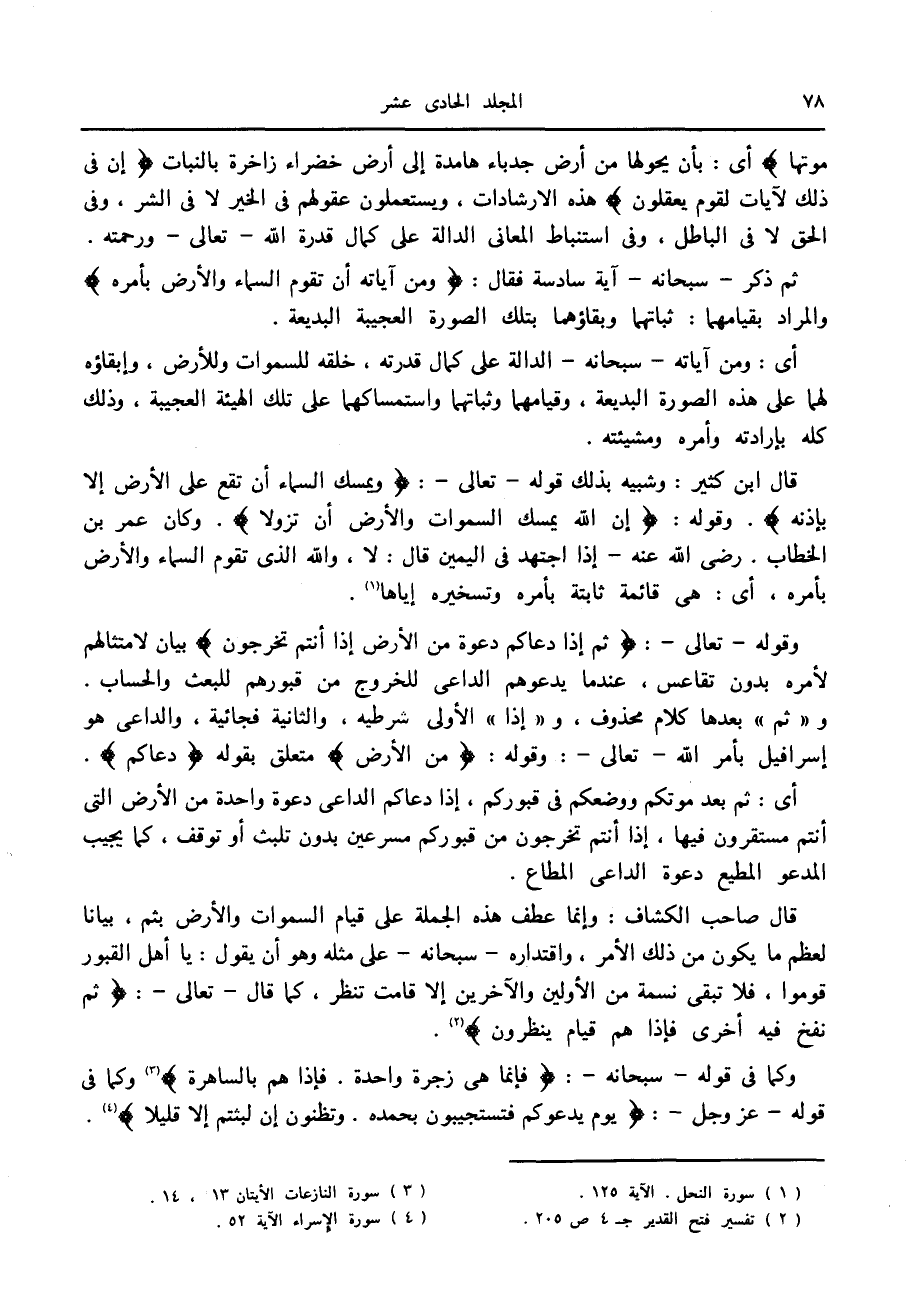 ٧٨ المجلد الحادى عشر
موتها ﴾ أى : بأن يحولها من أرض جدباء هامدة إلى أرض خضراء زاخرة بالنبات ﴿ إن فى
ذلك لآيات لقوم يعقلون ﴾ هذه الارشادات ، ويستعملون عقولهم فى الخير لا فى الشر ، وفى
الحق لا فى الباطل ، وفى استنباط المعانى الدالة على كمال قدرة الله - تعالى - ورحمته .
ثم ذكر - سبحانه - آية سادسة فقال : ﴿ ومن آياته أن تقوم السماء والأرض بأمره ﴾
والمراد بقيامهما : ثباتهما وبقاؤهما بتلك الصورة العجيبة البديعة .
أى : ومن آياته - سبحانه - الدالة على كمال قدرته ، خلقه للسموات وللأرض ، وإبقاؤه
لهما على هذه الصورة البديعة ، وقيامهما وثباتهما واستمساكهما على تلك الهيئة العجيبة ، وذلك
كله بإرادته وأمره ومشيئته .
قال ابن كثير : وشبيه بذلك قوله - تعالى - : ﴿ ويمسك السماء أن تقع على الأرض إلا
بإذنه ﴾ . وقوله : ﴿ إن الله يمسك السموات والأرض أن تزولا ﴾ . وكان عمر بن
الخطاب . رضى الله عنه - إذا اجتهد فى اليمين قال : لا ، والله الذى تقوم السماء والأرض
بأمره ، أى : هى قائمة ثابتة بأمره وتسخيره إياها(١) .
وقوله - تعالى - : ﴿ ثم إذا دعاكم دعوة من الأرض إذا أنتم تخرجون ﴾ بيان لامتثالهم
لأمره بدون تقاعس ، عندما يدعوهم الداعى للخروج من قبورهم للبعث والحساب .
و « ثم » بعدها كلام محذوف ، و « إذا » الأولى شرطيه ، والثانية فجائية ، والداعى هو
إسرافيل بأمر الله - تعالى - : وقوله : ﴿ من الأرض ﴾ متعلق بقوله ﴿ دعاكم ﴾ .
أى : ثم بعد موتكم ووضعكم فى قبوركم ، إذا دعاكم الداعى دعوة واحدة من الأرض التى
أنتم مستقرون فيها ، إذا أنتم تخرجون من قبوركم مسرعين بدون تلبث أو توقف ، كما يجيب
المدعو المطيع دعوة الداعى المطاع .
قال صاحب الكشاف : وإنما عطف هذه الجملة على قيام السموات والأرض بثم ، بيانا
لعظم ما يكون من ذلك الأمر ، واقتداره - سبحانه - على مثله وهو أن يقول : يا أهل القبور
قوموا ، فلا تبقى نسمة من الأولين والآخرين إلا قامت تنظر ، كما قال - تعالى - : ﴿ ثم
نفخ فيه أخرى فإذا هم قيام ينظرون ﴾(٢) .
وكما فى قوله - سبحانه - : ﴿ فإنما هى زجرة واحدة . فإذا هم بالساهرة ﴾(٣) وكما فى
قوله - عز وجل - : ﴿ يوم يدعوكم فتستجيبون بحمده . وتظنون إن لبثتم إلا قليلا ﴾(٤) .
( ١ ) سورة النحل . الآية ١٢٥ .
( ٢ ) تفسير فتح القدير جـ ٤ ص ٢٠٥ .
( ٣ ) سورة النازعات الأيتان ١٣ ، ١٤ .
( ٤ ) سورة الإسراء الآية ٥٢ .